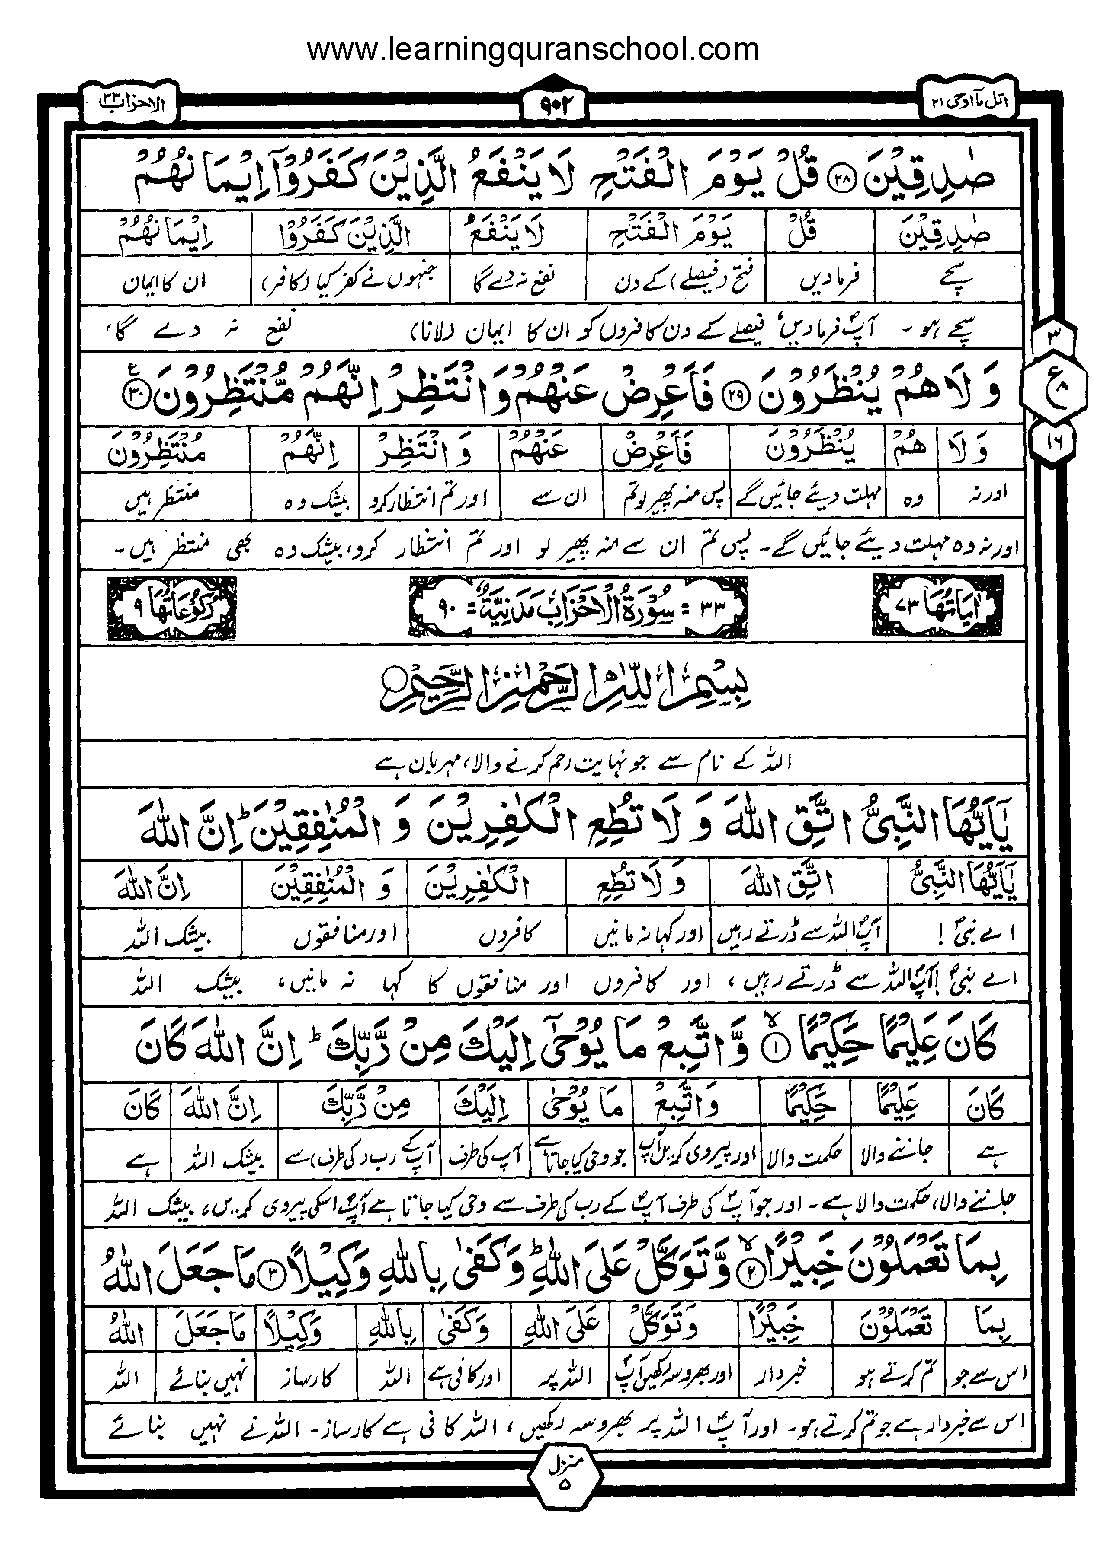 www.learningquranschool.com
اتل مآ اوحی ۲۱
۹۰۲
الاحزاب ۳۳
صٰدِقِیْنَ ﴿۲۸﴾ قُلْ یَوْمَ الْفَتْحِ لَا یَنْفَعُ الَّذِیْنَ كَفَرُوْۤا اِیْمَانُهُمْ
صٰدِقِیْنَ قُلْ یَوْمَ الْفَتْحِ لَا یَنْفَعُ الَّذِیْنَ كَفَرُوْۤا اِیْمَانُهُمْ
سچے فرمادیں فتح (فیصلے) کے دن نفع نہ دے گا جنہوں نے کفر کیا (کافر) ان کا ایمان
سچے ہو ۔ آپؐ فرمادیں فیصلے کے دن کافروں کو ان کا ایمان (لانا) نفع نہ دے گا،
وَ لَا هُمْ یُنْظَرُوْنَ ﴿۲۹﴾ فَاَعْرِضْ عَنْهُمْ وَ انْتَظِرْ اِنَّهُمْ مُّنْتَظِرُوْنَ ﴿۳۰﴾
۳
ع ۸
۱۶
وَ لَا هُمْ یُنْظَرُوْنَ فَاَعْرِضْ عَنْهُمْ وَ انْتَظِرْ اِنَّهُمْ مُنْتَظِرُوْنَ
اور نہ وہ مہلت دیئے جائیں گے پس منہ پھیر لو تم ان سے اور تم انتظار کرو بیشک وہ منتظر ہیں
اور نہ وہ مہلت دیئے جائیں گے ۔ پس تم ان سے منہ پھیر لو اور تم انتظار کرو، بیشک وہ بھی منتظر ہیں ۔
اٰیَاتُهَا ۷۳
۳۳ = سُوْرَةُ الْاَحْزَابِ مَدَنِیَّةٌ = ۹۰
رُكُوْعَاتُهَا ۹
بِسْمِ اللّٰهِ الرَّحْمٰنِ الرَّحِیْمِ
اللہ کے نام سے جو نہایت رحم کرنے والا، مہربان ہے
یٰۤاَیُّهَا النَّبِیُّ اتَّقِ اللّٰهَ وَ لَا تُطِعِ الْكٰفِرِیْنَ وَ الْمُنٰفِقِیْنَ ؕ اِنَّ اللّٰهَ
یٰۤاَیُّهَا النَّبِیُّ اتَّقِ اللّٰهَ وَ لَا تُطِعِ الْكٰفِرِیْنَ وَ الْمُنٰفِقِیْنَ اِنَّ اللّٰهَ
اے نبیؐ ! آپؐ اللہ سے ڈرتے رہیں اور کہا نہ مانیں کافروں اور منافقوں بیشک اللہ
اے نبیؐ ! آپؐ اللہ سے ڈرتے رہیں، اور کافروں اور منافقوں کا کہا نہ مانیں، بیشک اللہ
كَانَ عَلِیْمًا حَكِیْمًا ﴿۱﴾ وَّ اتَّبِعْ مَا یُوْحٰۤی اِلَیْكَ مِنْ رَّبِّكَ ؕ اِنَّ اللّٰهَ كَانَ
كَانَ عَلِیْمًا حَكِیْمًا وَ اتَّبِعْ مَا یُوْحٰۤی اِلَیْكَ مِنْ رَّبِّكَ اِنَّ اللّٰهَ كَانَ
ہے جاننے والا حکمت والا اور پیروی کریں آپ جو وحی کیا جاتا ہے آپ کی طرف آپؐ کے رب (کی طرف) سے بیشک اللہ ہے
جاننے والا، حکمت والا ہے ۔ اور جو آپؐ کی طرف آپؐ کے رب کی طرف سے وحی کیا جاتا ہے آپؐ اسکی پیروی کریں، بیشک اللہ
بِمَا تَعْمَلُوْنَ خَبِیْرًا ﴿۲﴾ وَّ تَوَكَّلْ عَلَی اللّٰهِ ؕ وَ كَفٰی بِاللّٰهِ وَكِیْلًا ﴿۳﴾ مَا جَعَلَ اللّٰهُ
بِمَا تَعْمَلُوْنَ خَبِیْرًا وَ تَوَكَّلْ عَلَی اللّٰهِ وَ كَفٰی بِاللّٰهِ وَكِیْلًا مَا جَعَلَ اللّٰهُ
اس سے جو تم کرتے ہو خبردار اور بھروسہ رکھیں آپؐ اللہ پر اور کافی ہے اللہ کارساز نہیں بنائے اللہ
اس سے خبردار ہے جو تم کرتے ہو ۔ اور آپؐ اللہ پر بھروسہ رکھیں، اللہ کافی ہے کارساز ۔ اللہ نے نہیں بنائے
منزل ۵